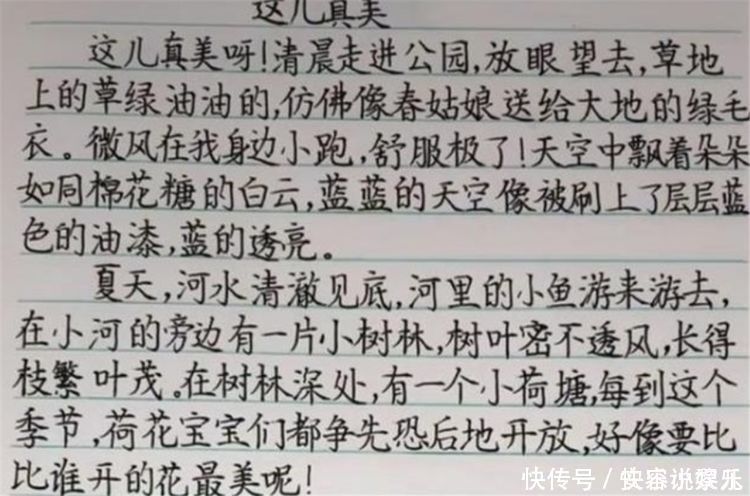 这儿真美
这儿真美呀！清晨走进公园，放眼望去，草地
上的草绿油油的，仿佛像春姑娘送给大地的绿毛
衣。微风在我身边小跑，舒服极了！天空中飘着朵朵
如同棉花糖的白云，蓝蓝的天空像被刷上了层层蓝
色的油漆，蓝的透亮。
夏天，河水清澈见底，河里的小鱼游来游去，
在小河的旁边有一片小树林，树叶密不透风，长得
枝繁叶茂。在树林深处，有一个小荷塘，每到这个
季节，荷花宝宝们都争先恐后地开放，好像要比
比谁开的花最美呢！
快传号／